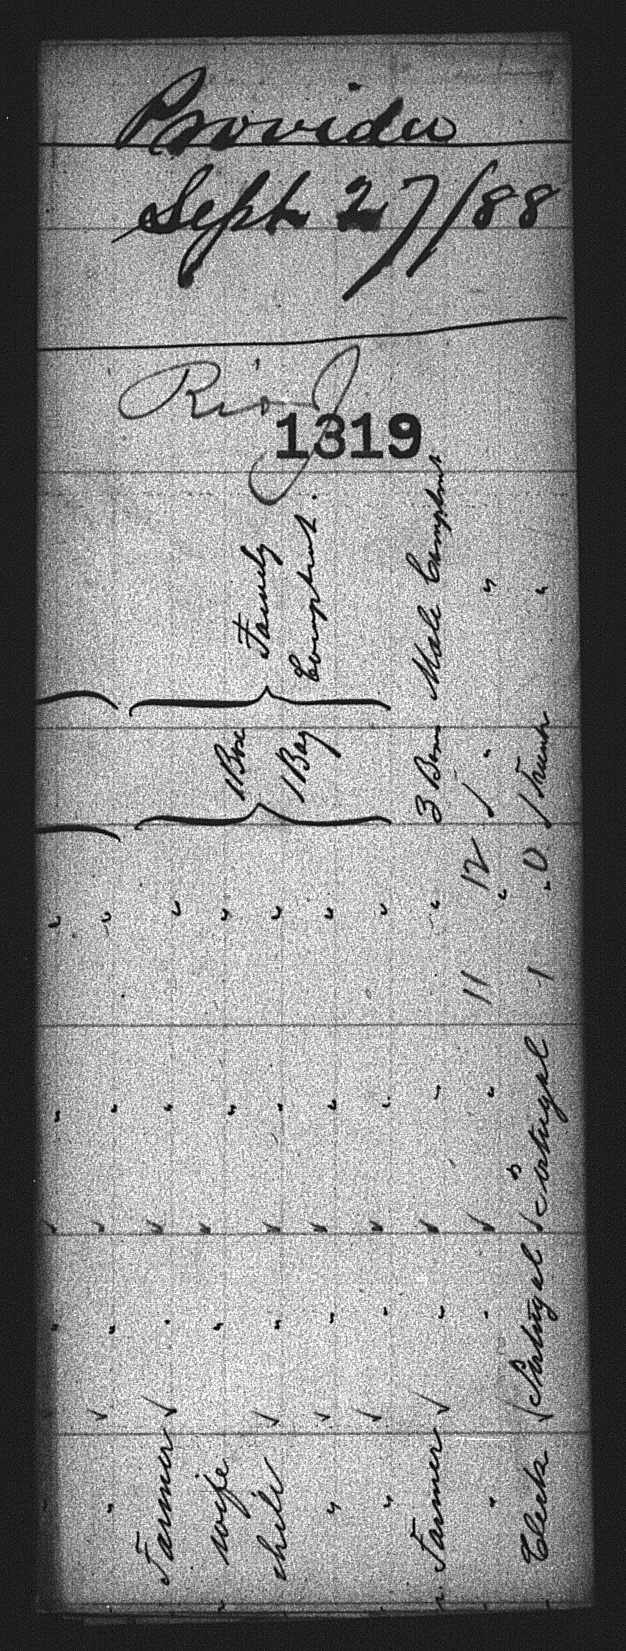 Sept 27/88
Rio J
1319
Family
Male
1 Box
1 Bag
3
"
1 Trunk
12
11
"
0
1
Portugal
Portugal
"
Farmer
wife
child
"
"
Farmer
"
Clerk